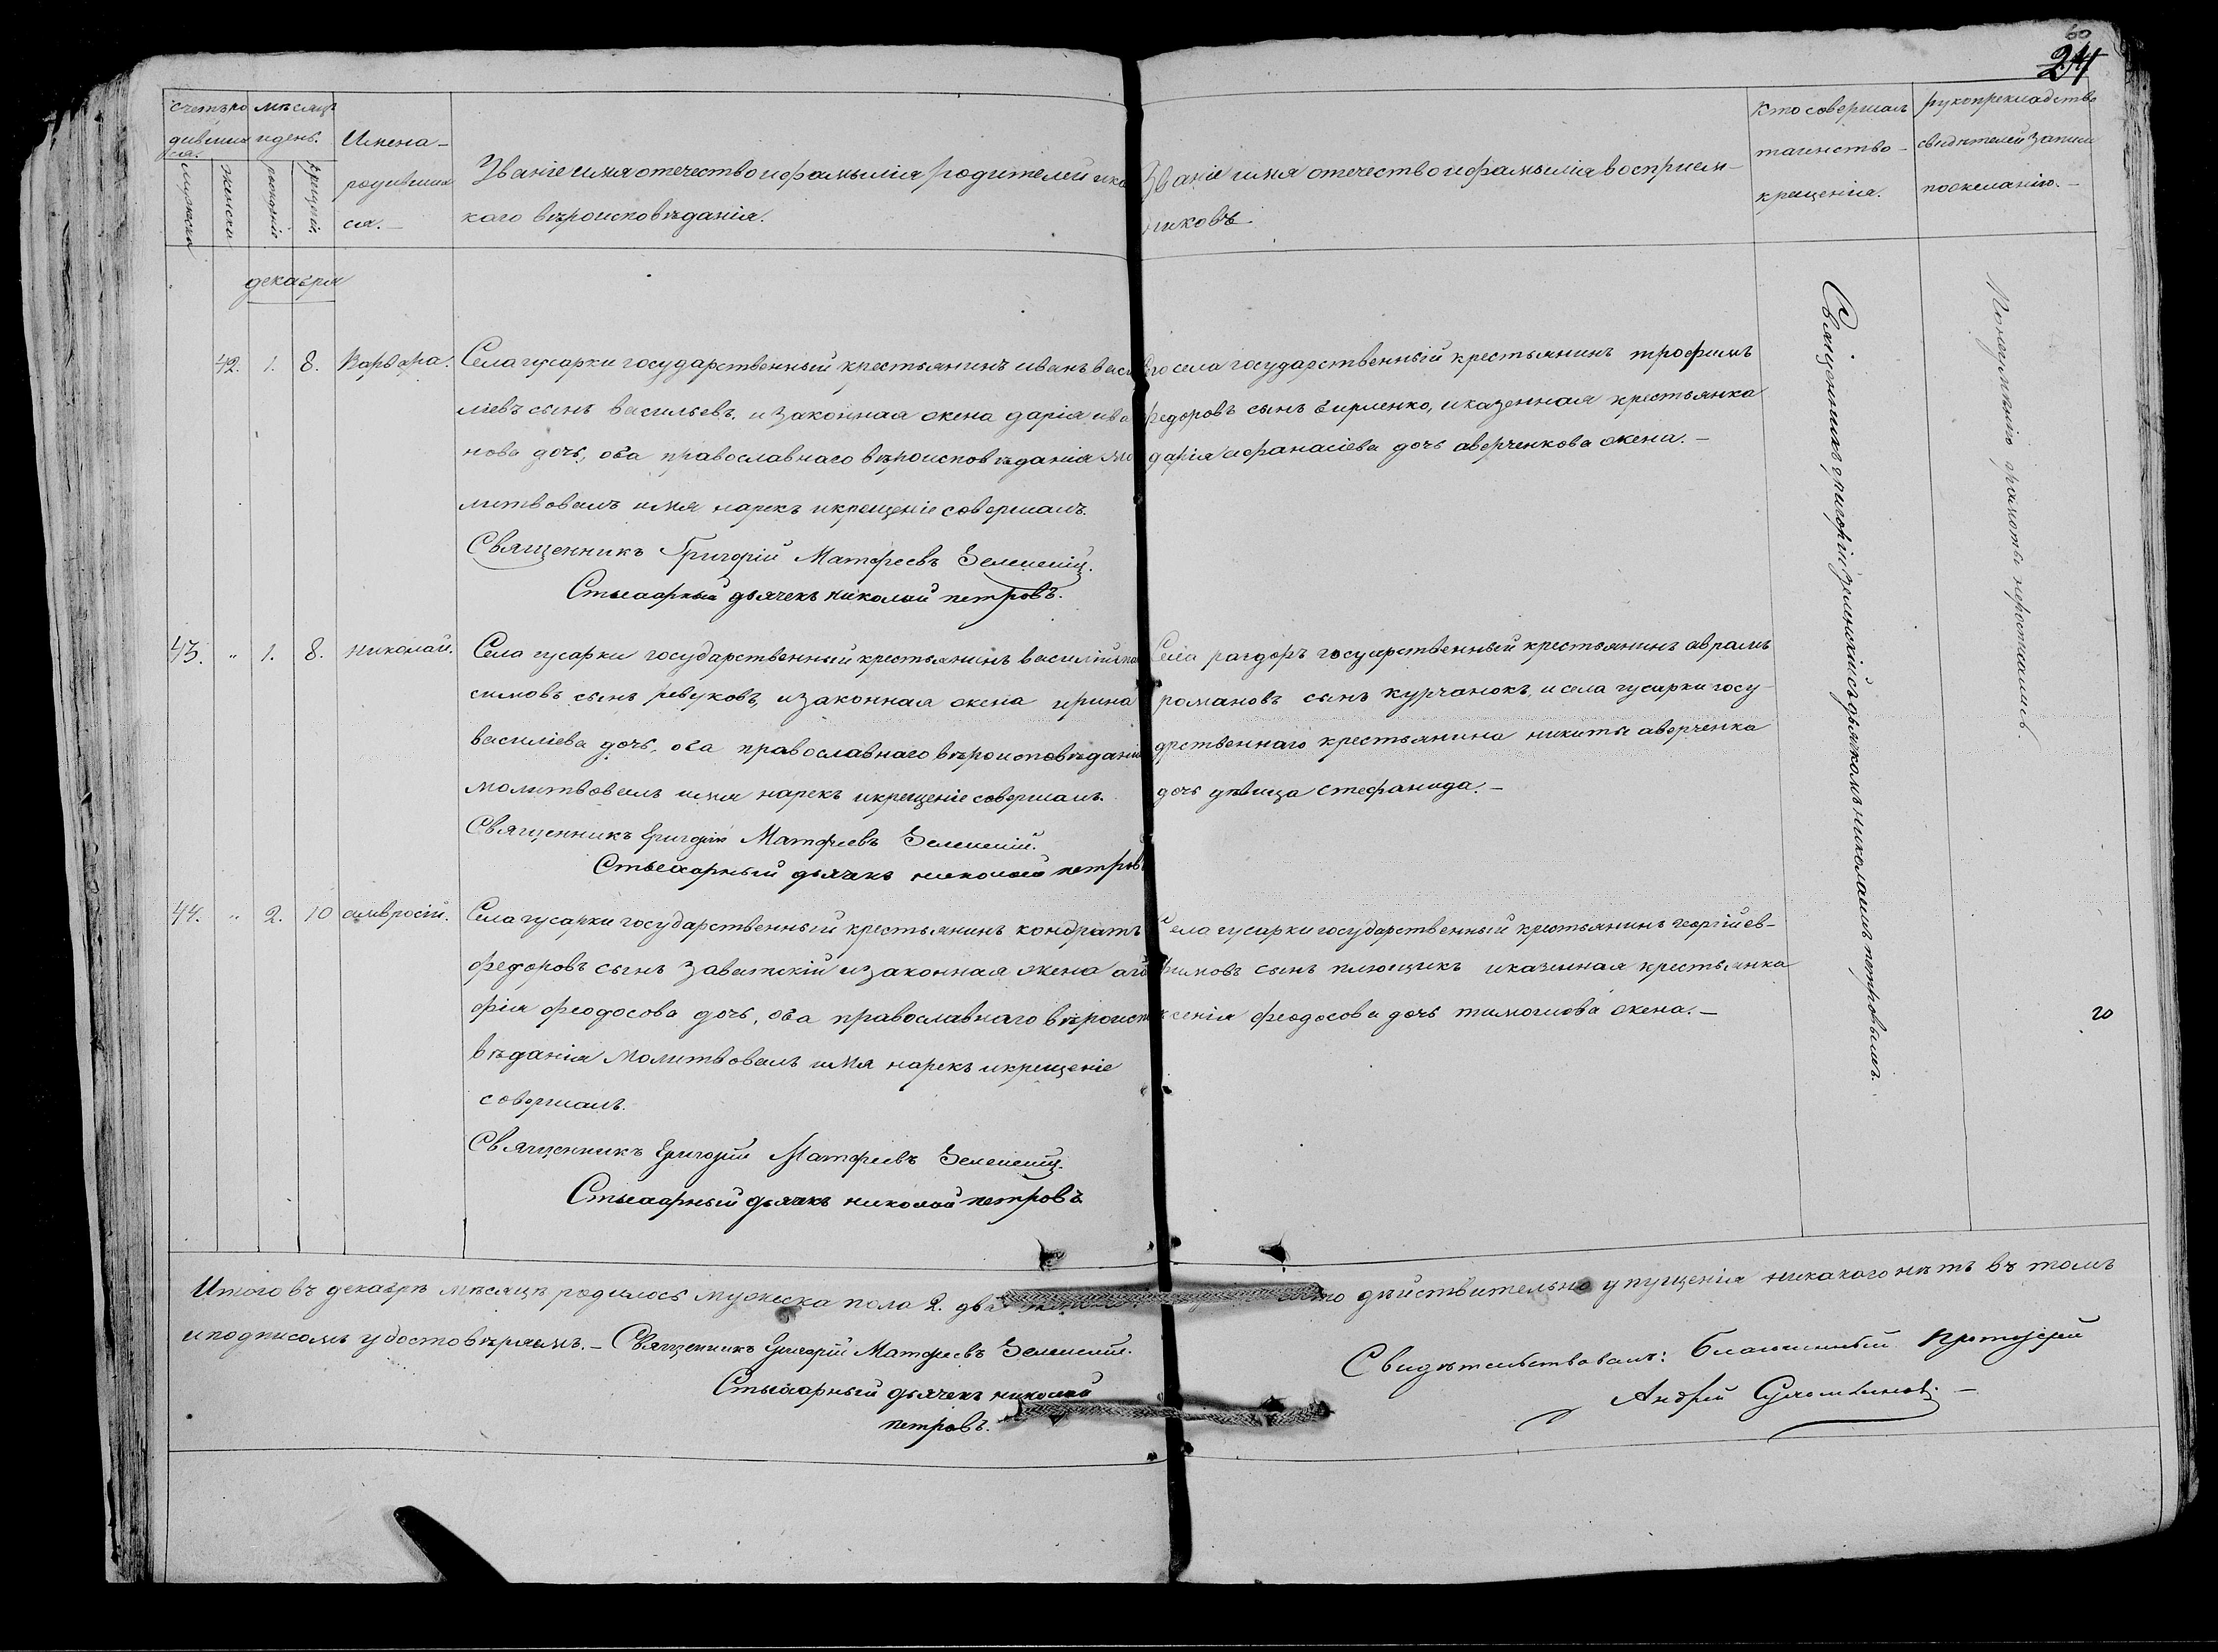 60
24
счетъ ро
дившихся.
мѣсяцъ
и день.
мужеска
женска
рожденія
крещенія.
Имена
родивших
ся.
Званіе имя отечество и фамылія родителей и ка
каго вѣроисповѣданія.
Званіе имя отечество и фамылія воспріем-
никовъ.
Кто совершалъ
таинство
крещенія.
рукоприкладство
свидѣтелей записи
по желанію.
декабря
42. 1. 8. Варвара.
Села гусарки государственный крестьянинъ иванъ васи
ліевъ сынъ васильевъ, и законная жена дарія ива
нова дочь, оба православнаго вѣроисповѣданія мо
литвовалъ имя нарекъ и крещеніе совершалъ.
Священникъ Григорій Матфеевъ Зеленскій.
Стыхарный дьячекъ николай петровъ.
го села государственный крестьянинъ трофимъ
федоровъ сынъ бирленко, и казенная крестьянка
дарія афанасіева дочь аверченкова жена.-
43. " 1. 8. николай.
Села гусарки государственный крестьянинъ василій
симовъ сынъ ревуковъ, и законная жена ирина
василіева дочь, оба православнаго вѣроисповѣданія
молитвовалъ имя нарекъ и крещеніе совершалъ.
Священникъ Григорій Матфеевъ Зеленскій.
Стыхарный дьячекъ николай петровъ
Села раздоръ госуарственный крестьянинъ аврамъ
романовъ сынъ курчанокъ, и села гусарки госу-
дрственнаго крестьянина никиты аверченка
дочь дѣвица стефанида.-
44. " 2. 10 амвросій.
Села гусарки государственный крестьянинъ кондратъ
федоровъ сынъ завацкій и законная жена ага
фія феодосова дочь, оба православнаго вѣроиспо
вѣданія молитвовалъ имя нарекъ и крещеніе
совершалъ.
Священникъ Григорій Матфеевъ Зеленскій.
Стыхарный дьячекъ николай петровъ
Села гусарки государственный крестьянинъ георгій ев-
фимовъ сынъ плющикъ и казенная крестьянка
ксенія феодосова дочь тимошова жена.-
Священникъ григорій зеленскій съ дьячкомъ николаемъ петровымъ.
По неумѣнію грамоты не росписались.
20
Итого въ декабрѣ мѣсяцѣ родилось мужеска пола 2. два что дѣйствительно упущенія никакого нѣтъ въ томъ
и подписомъ удостовѣряемъ.- Священникъ Григорій Матфеевъ Зеленскій.
Стыхарный дьячекъ николай
петровъ.
Свидѣтельствовалъ: Благочинный Протоіерей
Андрей